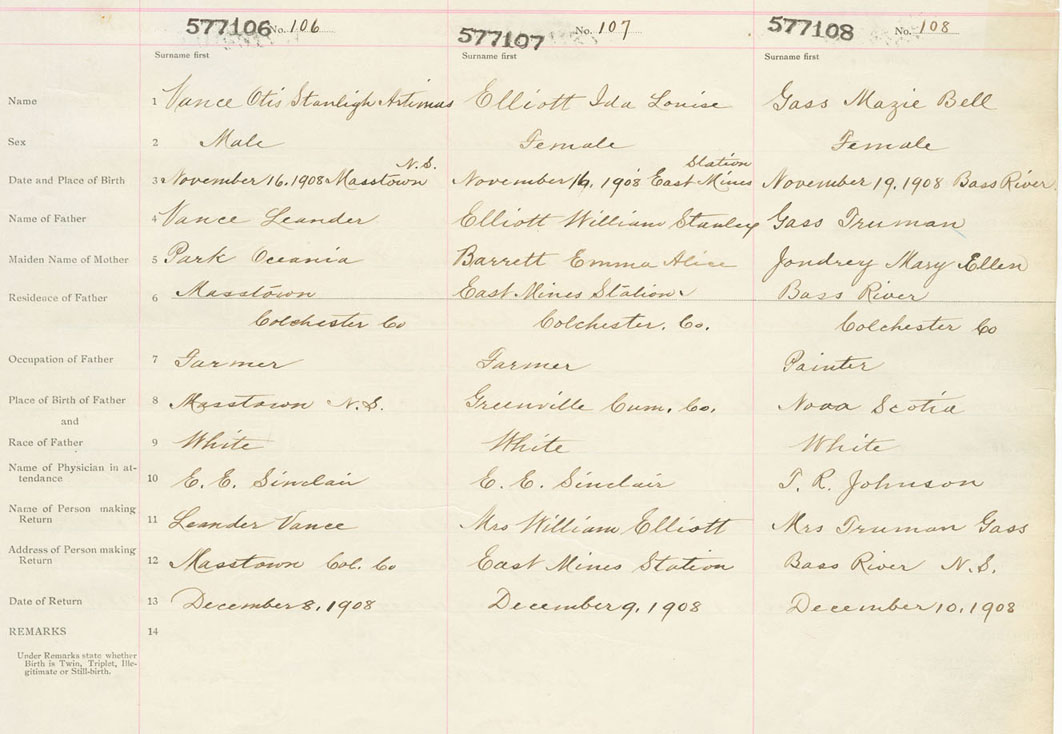 577106 No. 106 577107 No. 107 577108 No. 108
Surname first Surname first Surname first
Name 1 Vance Otis Stanligh Artimas Elliott Ida Louise Gass Mazie Bell
Sex 2 Male Female Female
N.S. Station
Date and Place of Birth 3 November 16, 1908 Masstown November 19, 1908 East Mines November 19, 1908 Bass River
Name of Father 4 Vance Leander Elliott William Stanley Gass Truman
Maiden Name of Mother 5 Park Oceania Barrett Emma Alice Jondrey Mary Ellen
Residence of Father 6 Masstown East Mines Station. Bass River
Colchester Co Colchester. Co. Colchester Co
Occupation of Father 7 Farmer Farmer Painter
Place of Birth of Father 8 Masstown N.S. Greenville Cum. Co. Nova Scotia
and
Race of Father 9 White White White
Name of Physician in at-
tendance 10 E. E. Sinclair E. E. Sinclair T. R. Johnson
Name of Person making
Return 11 Leander Vance Mrs William Elliott Mrs Truman Gass
Address of Person making
Return 12 Masstown Col. Co East Mines Station Bass River N.S.
Date of Return 13 December 8, 1908 December 9, 1908 December 10, 1908
REMARKS 14
Under Remarks state whether
Birth is Twin, Triplet, Ille-
gitimate or Still-birth.